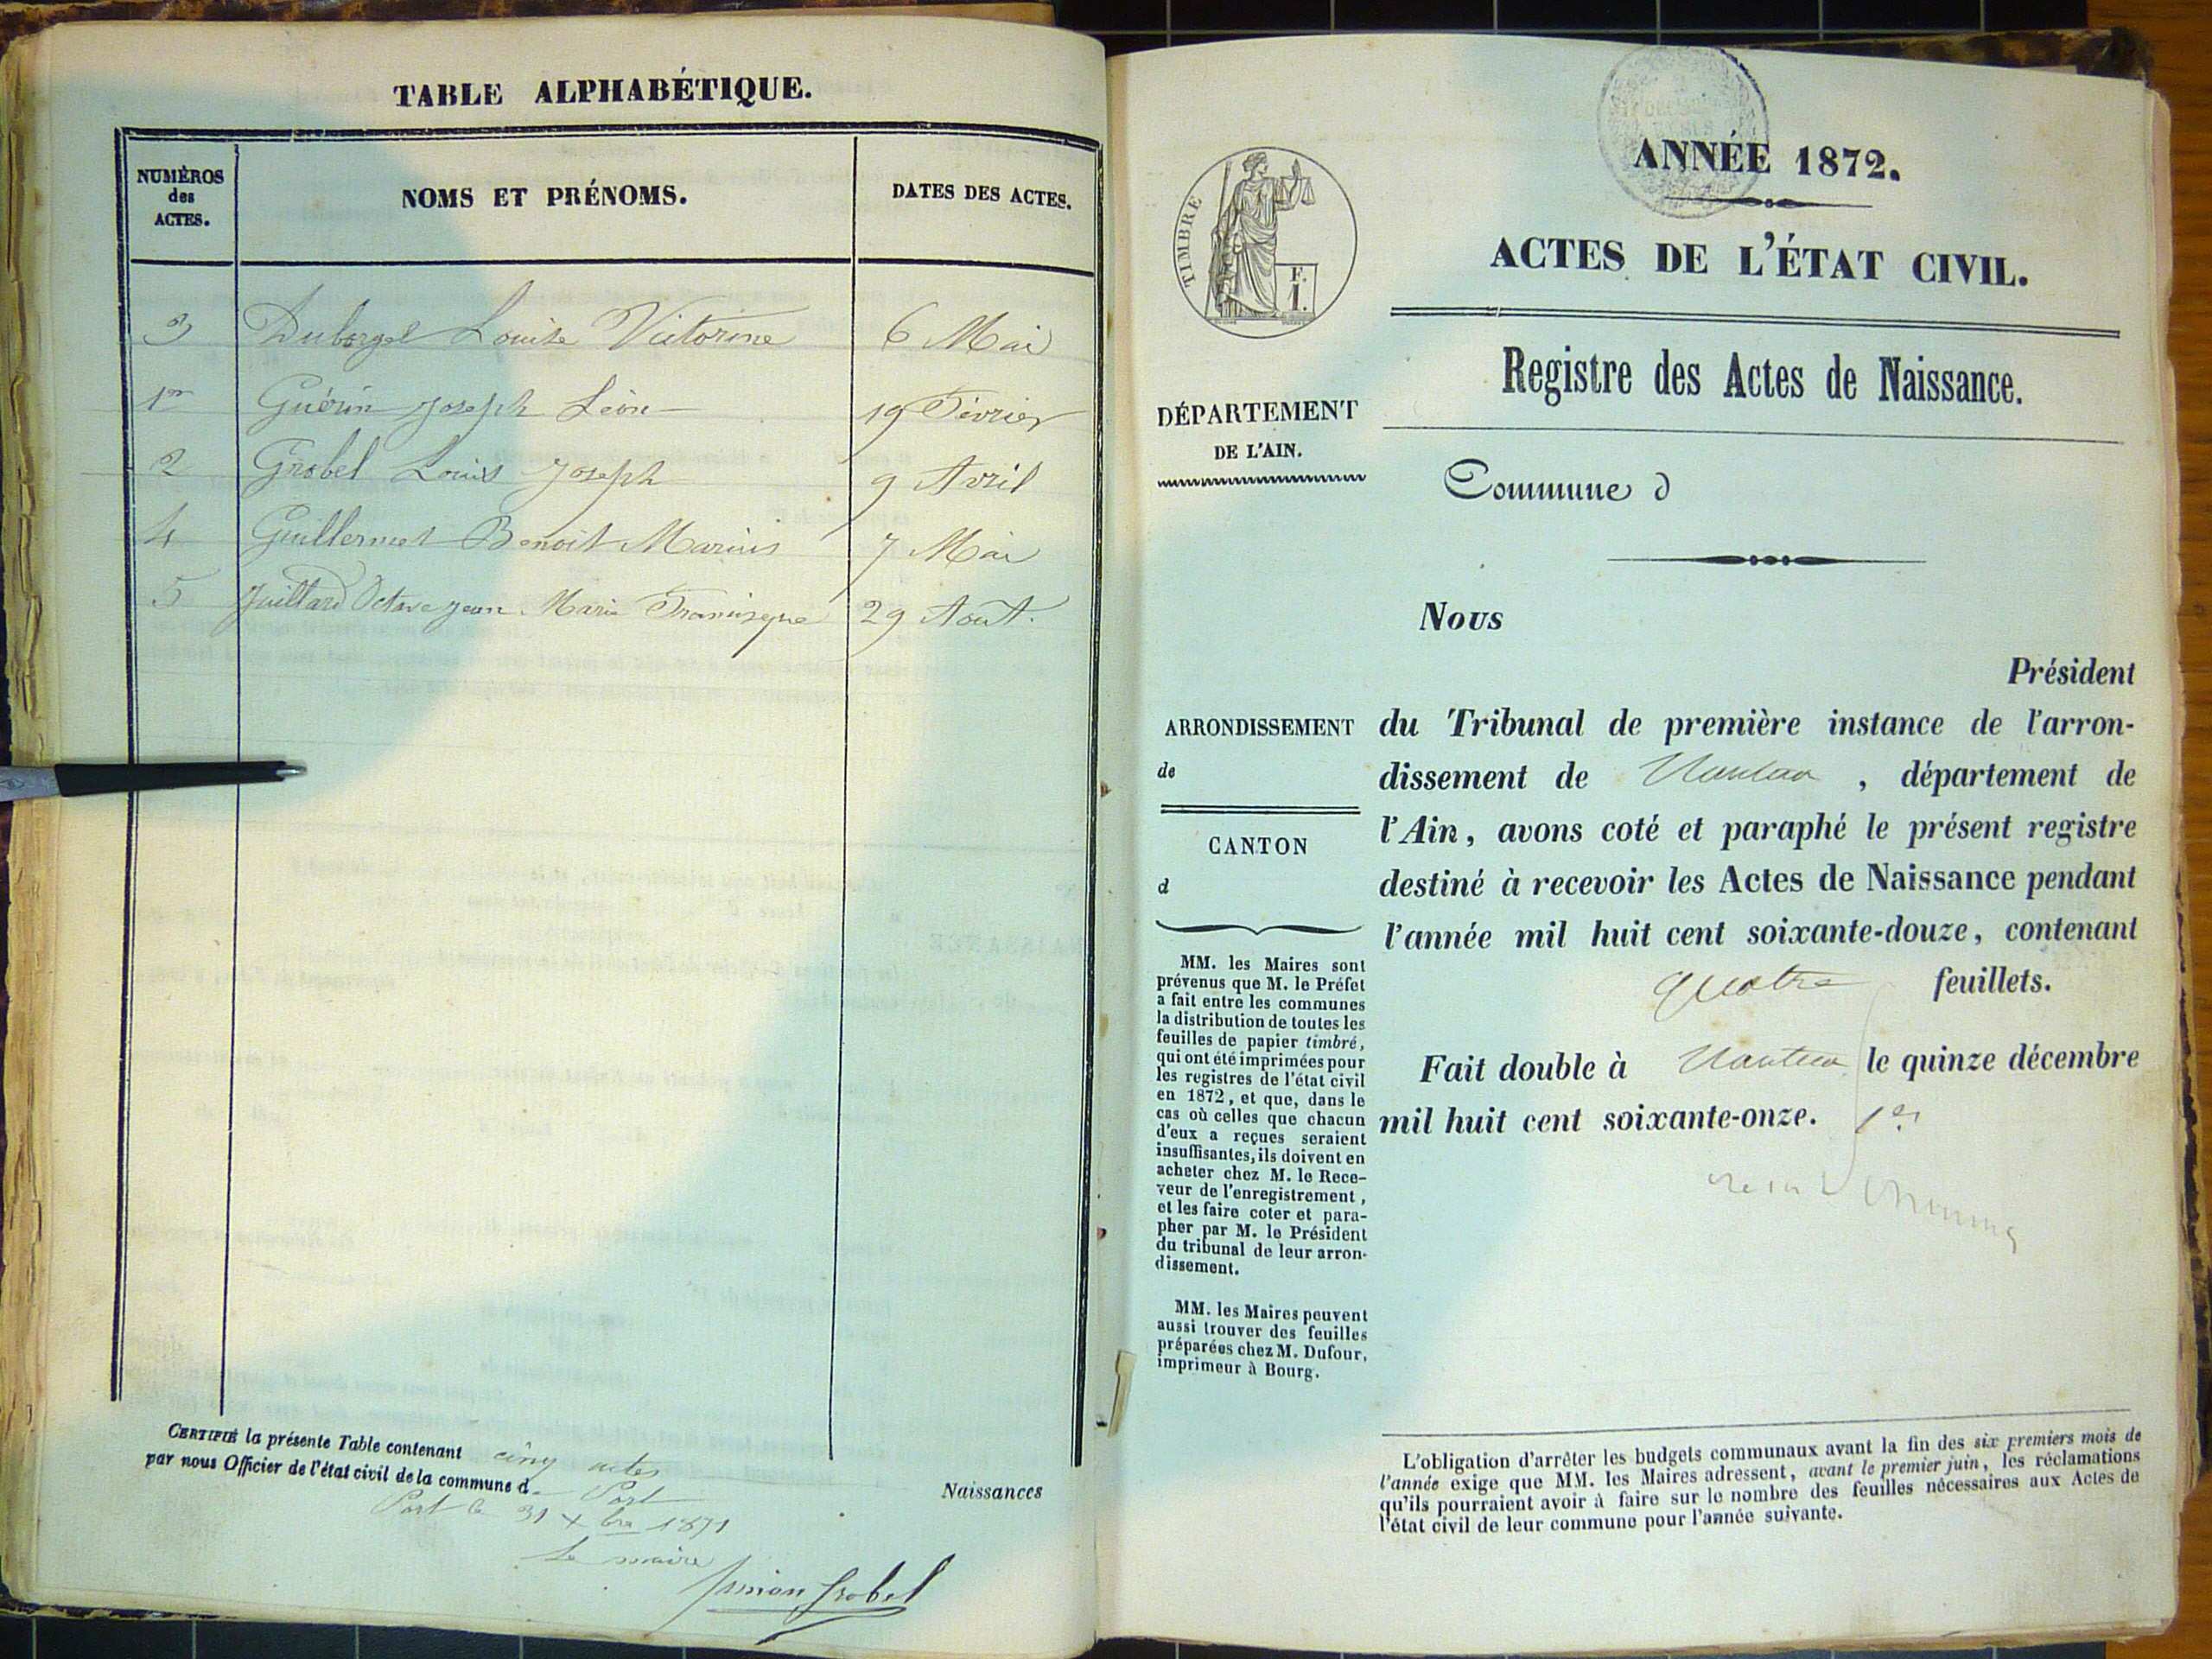 TABLE ALPHABÉTIQUE.
NUMÉROS
des
ACTES.
NOMS ET PRÉNOMS.
DATES DES ACTES.
3 Duborgel Louise Victorine 6 Mai
1er Guérin Joseph Léon 19 Février
2 Grobel Louis Joseph 9 Avril
4 Guillermet Benoit Marius 7 Mai
5 Juillard Octave Jean Marie Francisque 29 Aout.
CERTIFIÉ la présente Table contenant cinq actes
par nous Officier de l'état civil de la commune de Port
Port le 31 Xbre 1871
Le maire
Grobel
Naissances
ANNÉE 1872.
ACTES DE L'ÉTAT CIVIL.
TIMBRE
F.
1.
Registre des Actes de Naissance.
DÉPARTEMENT
DE L'AIN.
Commune d
Nous
Président
ARRONDISSEMENT
de
CANTON
d
du Tribunal de première instance de l'arron-
dissement de Nantua , département de
l'Ain, avons coté et paraphé le présent registre
destiné à recevoir les Actes de Naissance pendant
l'année mil huit cent soixante-douze, contenant
quatre feuillets.
Fait double à Nantua le quinze décembre
mil huit cent soixante-onze.
MM. les Maires sont
prévenus que M. le Préfet
a fait entre les communes
la distribution de toutes les
feuilles de papier timbré,
qui ont été imprimées pour
les registres de l'état civil
en 1872, et que, dans le
cas où celles que chacun
d'eux a reçues seraient
insuffisantes, ils doivent en
acheter chez M. le Rece-
veur de l'enregistrement,
et les faire coter et para-
pher par M. le Président
du tribunal de leur arron-
dissement.
MM. les Maires peuvent
aussi trouver des feuilles
préparées chez M. Dufour,
imprimeur à Bourg.
L'obligation d'arrêter les budgets communaux avant la fin des six premiers mois de
l'année exige que MM. les Maires adressent, avant le premier juin, les réclamations
qu'ils pourraient avoir à faire sur le nombre des feuilles nécessaires aux Actes de
l'état civil de leur commune pour l'année suivante.